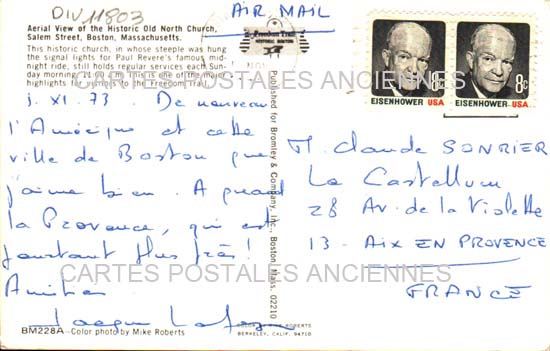 DIV 11803
AIR MAIL
Aerial View of the Historic Old North Church,
Salem Street, Boston, Massachusetts.
This historic church, in whose steeple was hung
the signal lights for Paul Revere's famous mid-
night ride, still holds regular services each Sun-
day morning, 11:00. This is one of the major
highlights for visitors to the Freedom Trail.
Freedom Trail
EISENHOWER USA 8c
EISENHOWER USA 8c
3. XI. 73. De nouveau
l'Amérique et cette
ville de Boston que
j'aime bien. A quand
la Provence, qui est
pourtant plus près!
Amitiés
Jacques
Published for Bromley & Company, Inc., Boston, Mass. 02210
M. Claude SONRIER
Le Castellum
28 Av. de la Violette
13 - AIX EN PROVENCE
FRANCE
CARTES POSTALES ANCIENNES
CARTES POSTALES ANCIENNES
BM228A—Color photo by Mike Roberts
COLOR BY MIKE ROBERTS
BERKELEY, CALIF. 94710